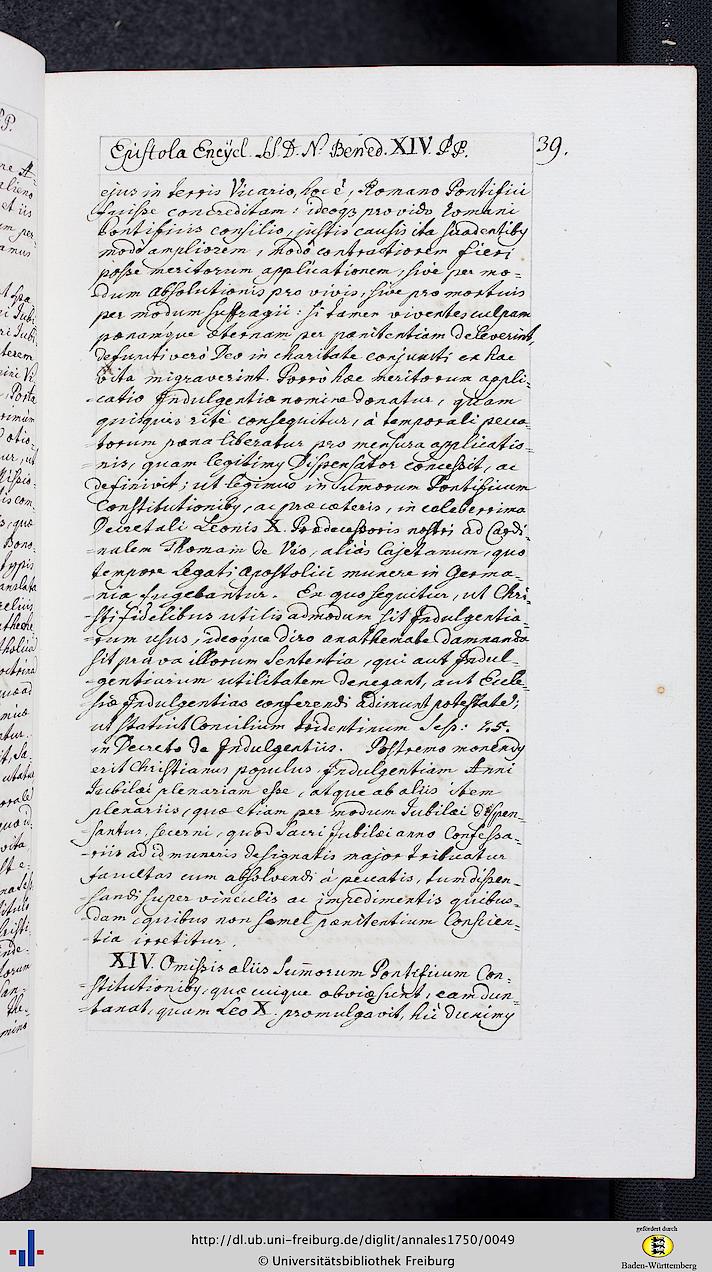 Epistola Encÿcl. SS. D. N. Bened. XIV. PP.
39.
ejus in terris Vicario, hoc ē, Romano Pontifici
fuisse concreditam: ideoqꝫ provido Romani
Pontificis consilio, justis causis ita suadentibꝰ
modò ampliorem, modò contractiorem fieri
posse meritorum applicationem, sive per mo=
=dum absolutionis pro vivis, sive pro mortuis
per modum suffragii: si tamen viventes culpam
pœnamque æternam per pœnitentiam deleverint,
defuncti verò Deo in charitate conjuncti ex hac
vita migraverint. Porrò hæc meritorum appli=
=catio Indulgentiæ nomine donatur, quam
quisquis ritè consequitur, à temporali pecca=
torum pœna liberatur pro mensura applicatio=
=nis, quam legitimꝰ Dispensator concessit, ac
definivit; ut legimus in Sum̄orum Pontificum
Constitutionibꝰ, ac præcæteris, in celeberrima
Decretali Leonis X. Prædecessoris nostri ad Cardi=
=nalem Thomam de Vio, aliàs Cajetanum, quo
tempore legati Apostolici munere in Germa=
=nia fugebantur. Ex quo sequitur, ut Chri=
=sti fidelibus utilis admodum sit Indulgentia=
=rum usus, ideoque diro anathemate damnanda
sit prava illorum sententia, qui aut Indul=
=gentiarum utilitatem denegant, aut Eccle=
=siæ Indulgentias conferendi adimunt potestatē;
ut statuit Concilium tridentinum Sess: 25.
in Decreto de Indulgentiis. Postremo monendꝰ
erit Christianus populus, Indulgentiam Anni
Jubilæi plenariam esse, atque ab aliis item
plenariis, quæ etiam per modum Jubilæi dispen=
santur, secerni, quòd Sacri Jubilæi anno Confessa=
=riis ad id muneris designatis major tribuatur
facultas cum absolvendi à peccatis, tum dispen=
=sandi super vinculis ac impedimentis quibus=
=dam, quibus non semel pœnitentium Conscien=
=tia irretitur.
XIV. Omissis aliis Sum̄orum Pontificum Con=
=stitutionibꝰ, quæ cuique obviæ sunt, eam dun=
=taxat, quam Leo X. promulgavit, hìc ducimꝰ
http://dl.ub.uni-freiburg.de/diglit/annales1750/0049
© Universitätsbibliothek Freiburg
gefördert durch
Baden-Württemberg